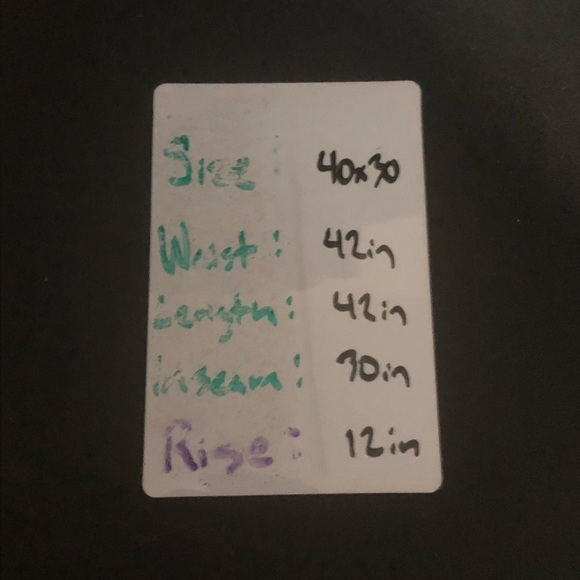 Size: 40x30
Waist: 42in
Length: 42in
Inseam: 30in
Rise: 12in